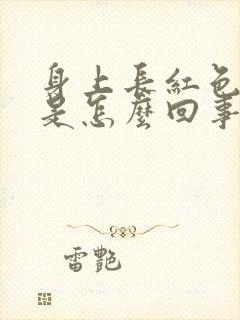 身上長紅色
是怎麼回事
雷艷